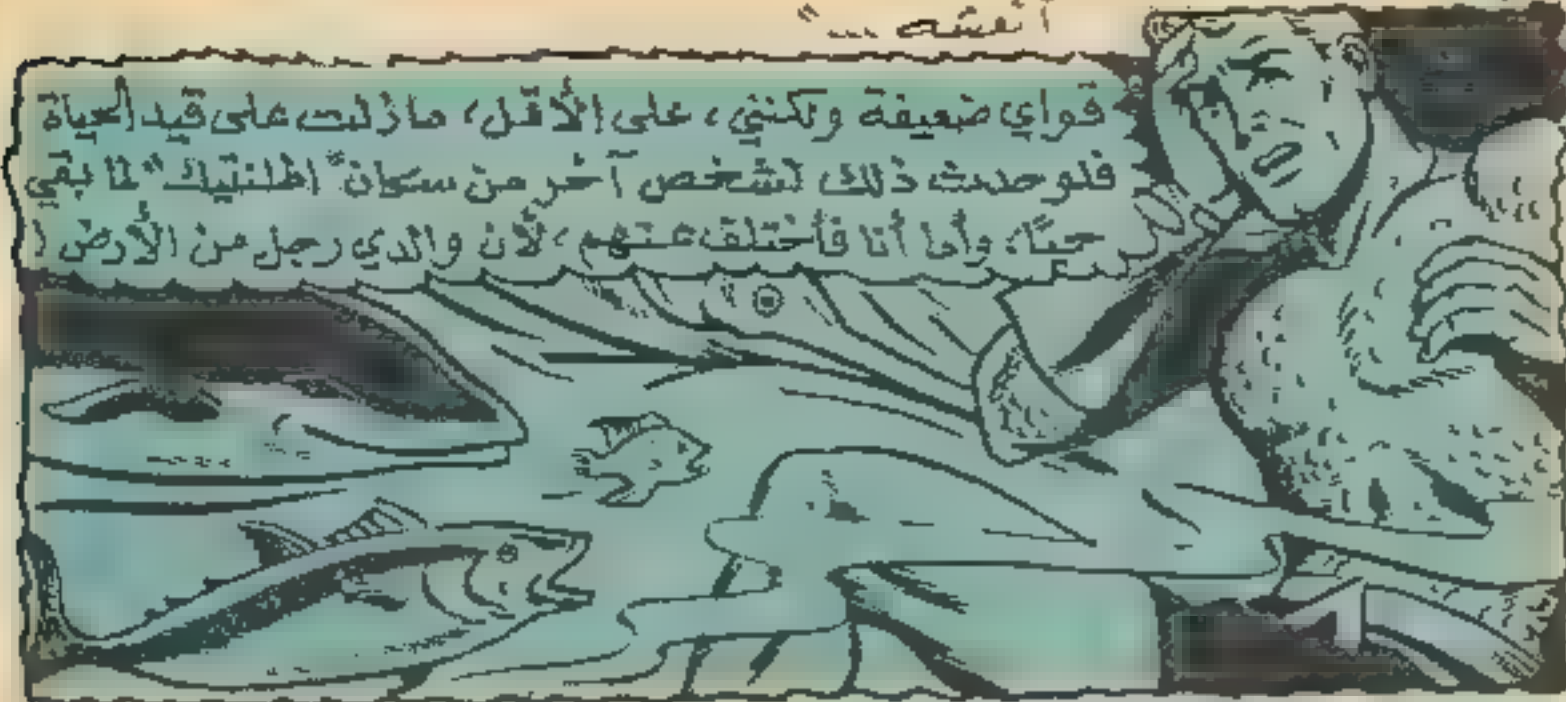 قواي ضعيفة ولكنني، على الأقل، ما زلت على قيد الحياة
فلو حدث ذلك لشخص آخر من سكان "اطلنتيك" لما بقي
حيًا، وأما أنا فأختلف عنهم، لأن والدي رجل من الأرض!